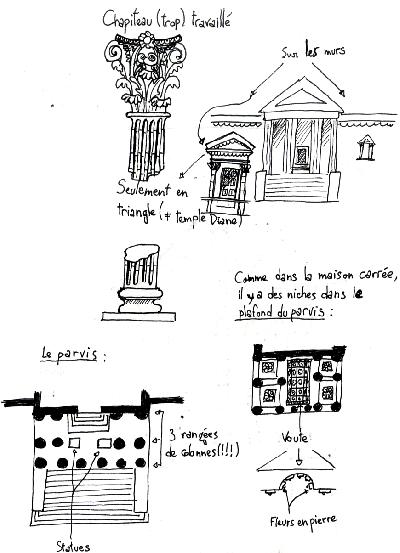 Chapiteau (trop) travaillé
Sur les murs
Seulement en
triangle! (≠ temple Diane)
Comme dans la maison carrée,
il y a des niches dans le
plafond du parvis :
Le parvis :
3 rangées
de colonnes (!!!)
Statues
Voute
Fleurs en pierre